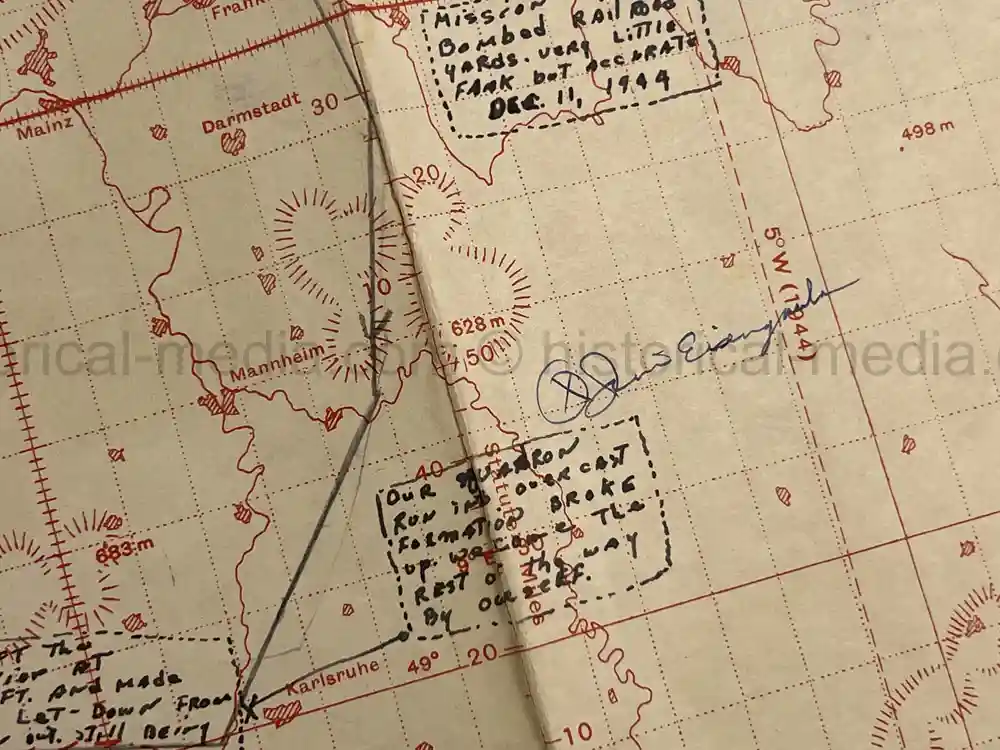 Frank
MISSION
Bombed RAILROAD
YARDS. VERY LITTLE
FAHK but ACCURATE
DEC. 11, 1944
Mainz
Darmstadt
30
20
10
498 m
5° W (1944)
628 m
50
Mannheim
rical-media.com © historical-media.c
40
Statute Miles
OUR SQUADRON
RUN INTO OVERCAST
FORMATION BROKE
UP. WE CAME THE
REST OF THE WAY
By OURSELF.
683 m
Karlsruhe
49°
20
10
FT The
AT
FT. AND MADE
LET-DOWN FROM
OUT. STILL BEING
X